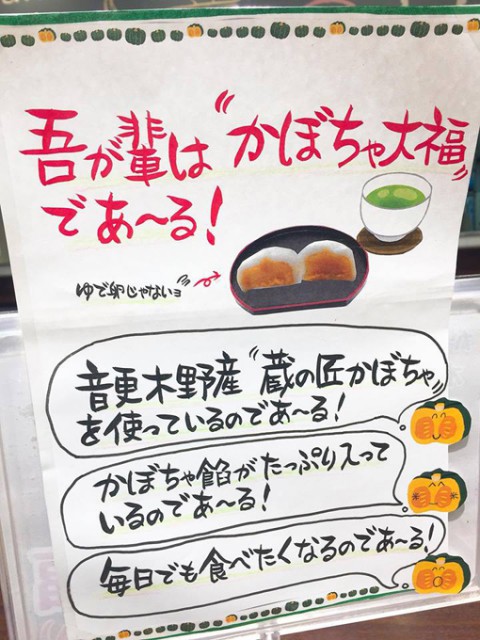 吾が輩は〝かぼちゃ大福〟
であ〜る!
ゆで卵じゃないョ
音更木野産〝蔵の匠かぼちゃ〟
を使っているのであ〜る!
かぼちゃ餡がたっぷり入って
いるのであ〜る!
毎日でも食べたくなるのであ〜る!